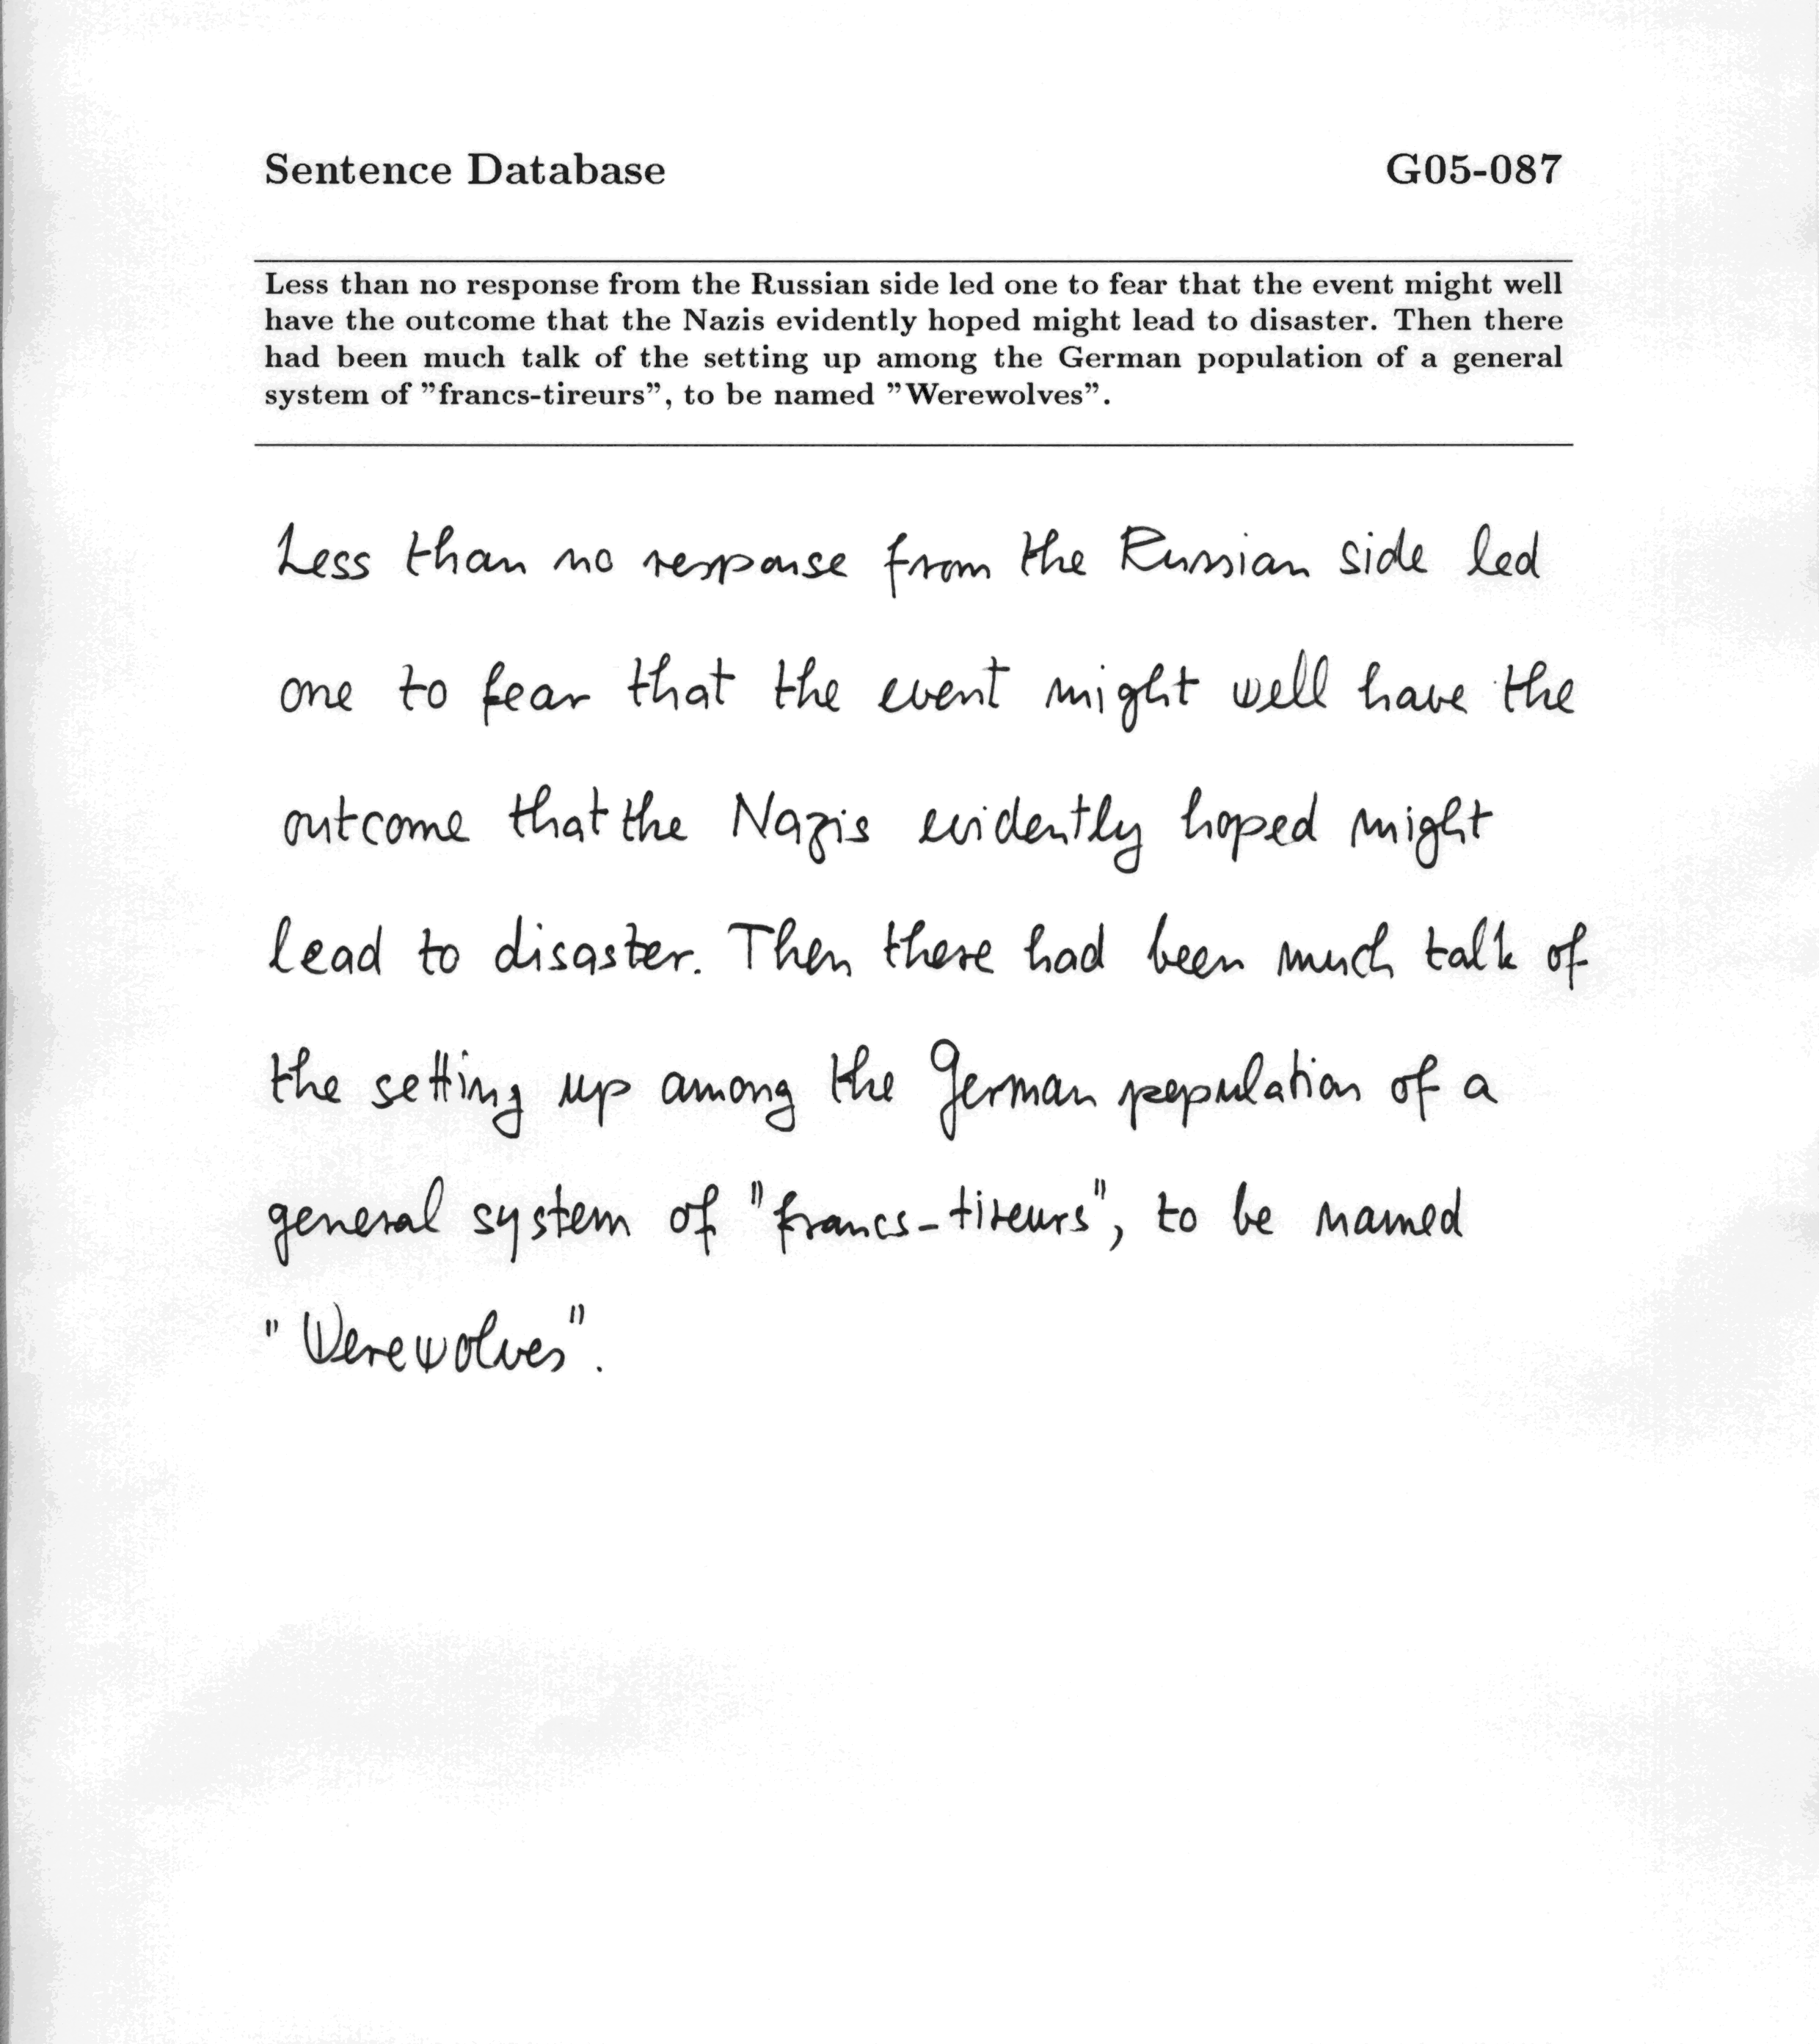 Sentence Database G05-087
Less than no response from the Russian side led one to fear that the event might well
have the outcome that the Nazis evidently hoped might lead to disaster. Then there
had been much talk of the setting up among the German population of a general
system of ”francs-tireurs”, to be named ”Werewolves”.
Less than no response from the Russian side led
one to fear that the event might well have the
outcome that the Nazis evidently hoped might
lead to disaster. Then there had been much talk of
the setting up among the German population of a
general system of "francs-tireurs", to be named
"Werewolves".